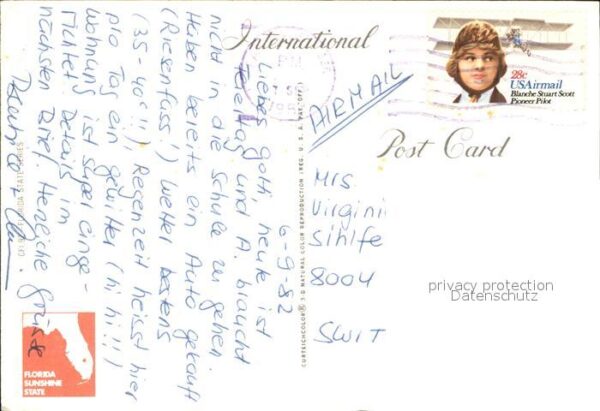 International
Post Card
28c
USAirmail
Blanche Stuart Scott
Pioneer Pilot
PM
AIRMAIL
6-9-82
Liebes gotti, heute ist
Feiertag und A. braucht
nicht in die Schule zu gehen.
Haben bereits ein Auto gekauft
(Riesenfuss!) Wetter bestens
(35-40°!!) Regenzeit heisst hier
pro Tag ein gewitter (hi hi!!)
Wohnung ist super einge-
richtet. Details im
nächsten Brief. Herzliche Grüsse
Mrs.
Virgini
Sihlfe
8004
SWIT
privacy protection
Datenschutz
CURTEICHCOLOR® 3-D NATURAL COLOR REPRODUCTION (REG. U.S.A. PAT. OFF.)
FLORIDA
SUNSHINE
STATE